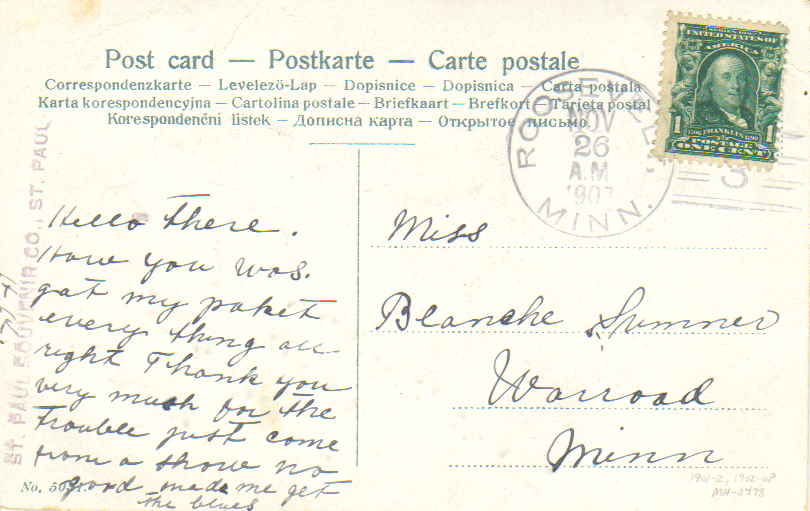 Post card — Postkarte — Carte postale
Correspondenzkarte — Levelező-Lap — Dopisnice — Dopisnica — Carta postala
Karta korespondencyjna — Cartolina postale — Briefkaart — Brefkort — Tarjeta postal
Korespondenčni listek — Дописна карта — Открытое письмо
ROOSEVEL
NOV
26
A.M
1907
MINN.
3
SERIES 1902
UNITED STATES OF
AMERICA
FRANKLIN
1 1
POSTAGE
ONE CENT
ST. PAUL SOUVENIR CO., ST. PAUL
Hello there.
How you was.
got my paket
every thing all
right Thank you
very much for the
trouble just come
from a show no
good made me get
the blues
Miss
Blanche Sumner
Warroad
Minn
No. 5031.
1901-2, 1902-08